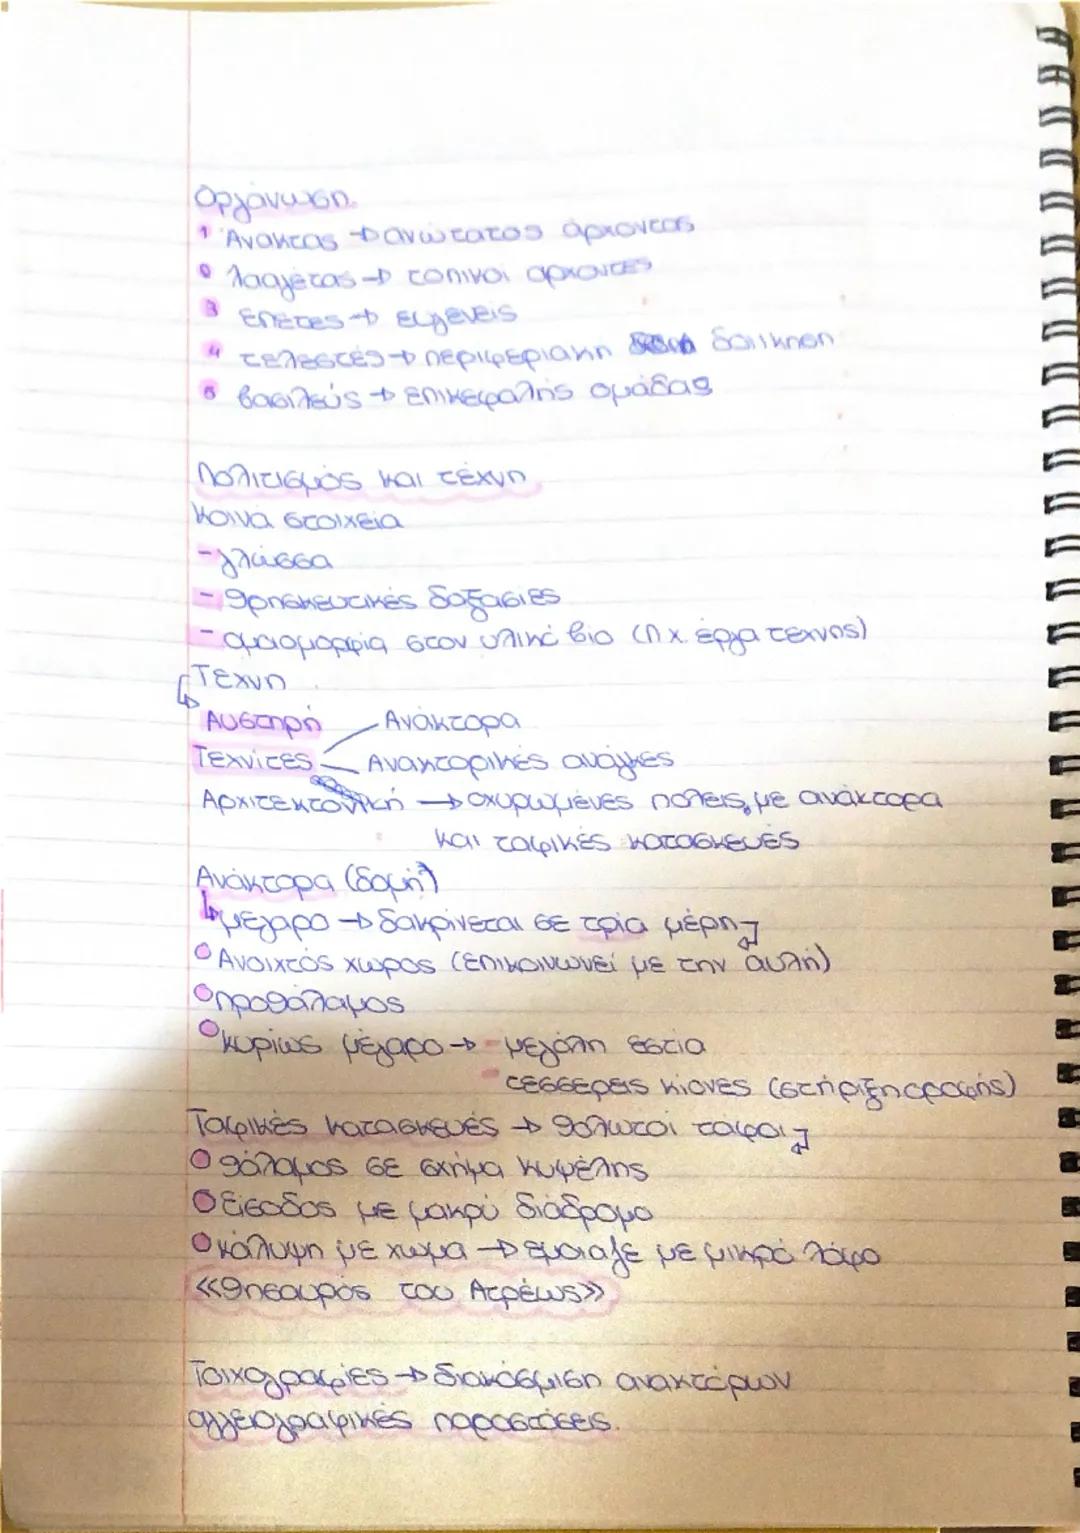 Οργάνωση
1 Άνακτας → ανώτατος άρχοντας
λααγέτας → τοπικοί άρχοντες
3 επέτες → ευγενείς
4 τελεστές → περιφεριακη διικηση
5 βασιλεύς → επικεφαλής ομάδας
Πολιτισμός και τέχνη
κοινά στοιχεία
- γλώσσα
- θρησκευτικές δοξασίες
- ομοιομορφία στον υλικό βιο (π.χ. έργα τέχνης)
Τέχνη
Αυστηρή
Ανάκτορα
Τεχνίτες
Ανακτορικές ανάγκες
Αρχιτεκτονική → οχυρωμένες πόλεις, με ανάκτορα
και ταφικές κατασκευές
Ανάκτορα (δομή)
μέγαρο → διακρίνεται σε τρία μέρη
Ανοιχτός χώρος (επικοινωνεί με την αυλή)
προθάλαμος
κυρίως μέγαρο → - μεγάλη εστία
- τέσσερεις κίονες (στήριξη οροφής)
Ταφικές κατασκευές → θολωτοί τάφοι
θάλαμος σε σχήμα κυψέλης
είσοδος με μακρύ διάδρομο
κάλυψη με χώμα → έμοιαζε με μικρό λόφο
«Θησαυρός του Ατρέως»
Τοιχογραφίες → διακόσμιση ανακτόρων
αγγειογραφικές παραστάσεις.